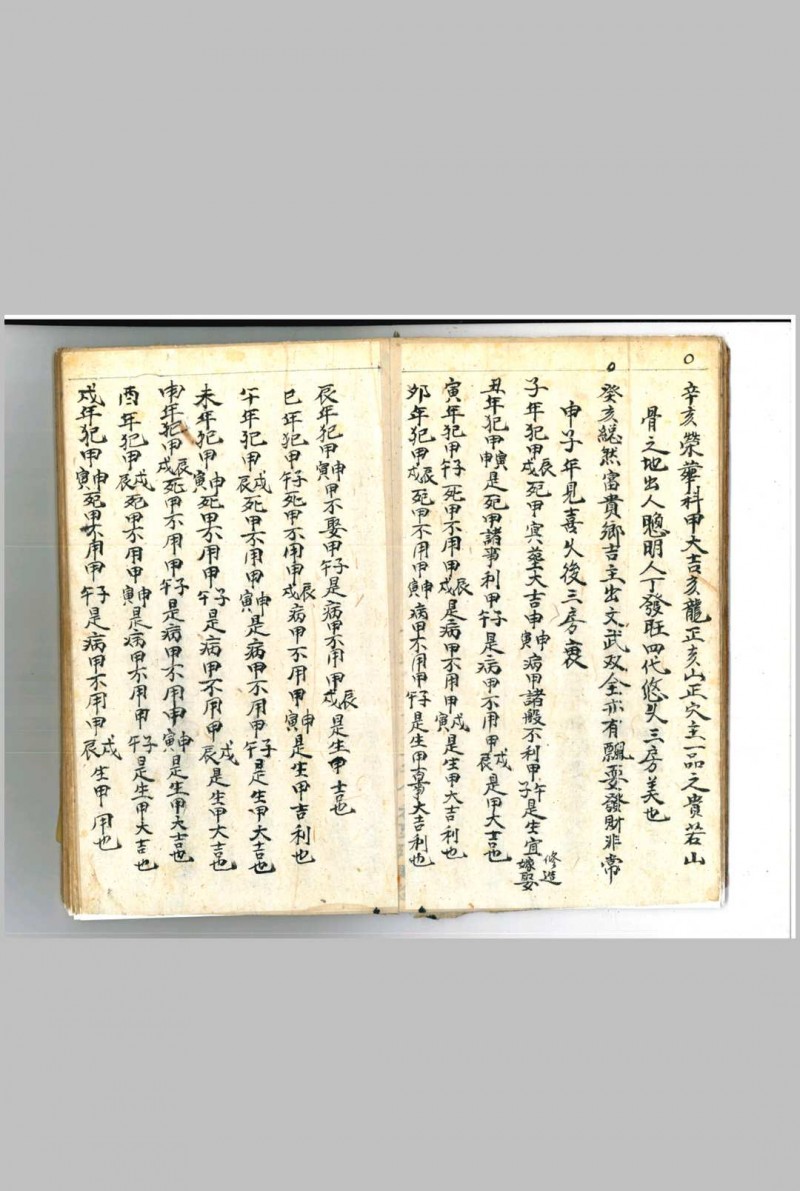 辛亥榮華科甲大吉亥龍正亥山正穴主一品之貴若山
骨之地出人聰明人丁發旺四代悠久三房美也
癸亥縂然富貴鄉吉主出文武双全亦有飄耍發財非常
申子年見喜久後三房衰
子年犯甲辰戌死甲㝠塟大吉申申寅病甲諸般不利甲午子是生宜修造嫁娶
丑年犯甲寅申是死甲諸事利甲子午是病甲不用甲戌辰是甲大吉也
寅年犯甲子午死甲不用甲辰戌是病甲不用甲戌寅是生甲大吉利也
卯年犯甲辰戌死甲不用甲申寅病甲不用甲子午是生甲專大吉利也
辰年犯甲申寅甲不娶甲子午是病甲不用甲辰戌是生甲吉也
巳年犯甲子午死甲不用申辰戌病甲不用甲申寅是生甲吉利也
午年犯甲戌辰死甲不用甲申寅是病甲不用甲子午是生甲大吉也
未年犯甲申寅死甲不用甲子午是病甲不用甲戌辰是生甲大吉也
申年犯甲辰戌死甲不用甲子午是病甲不用甲申寅是生甲大吉也
酉年犯甲戌辰死甲不用甲申寅是病甲不用甲子午是生甲大吉也
戌年犯甲申寅死甲不用甲子午是病甲不用甲戌辰生甲用也